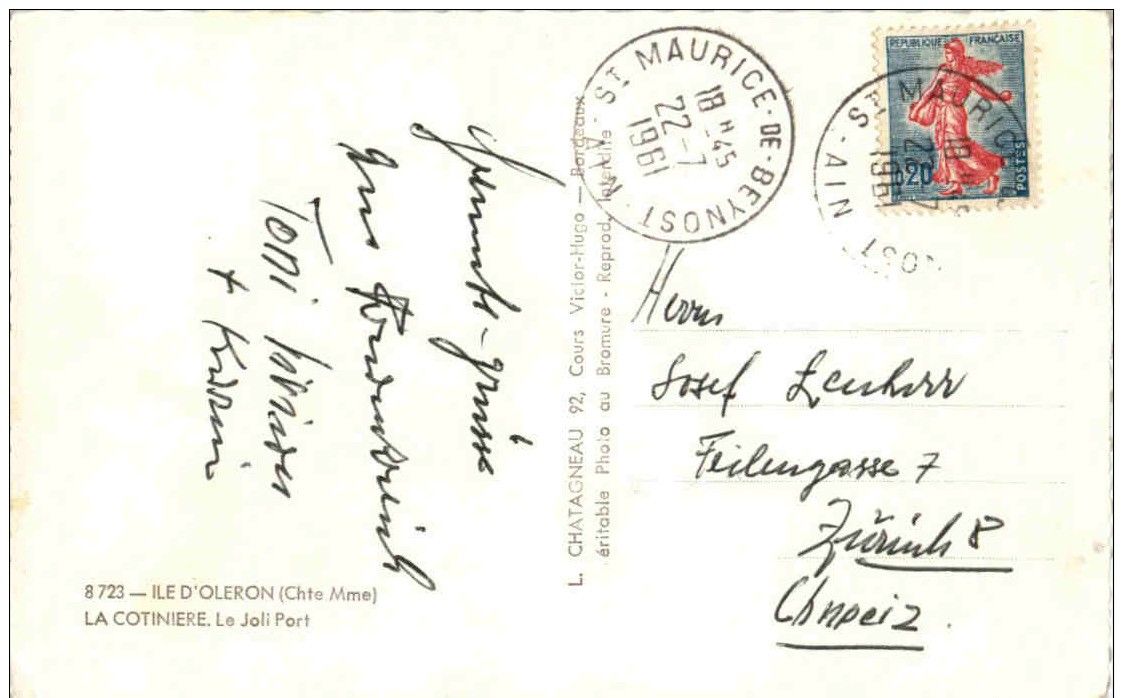 Herrn
Josef Zenherr
Feilengasse 7
Zürich 8
Schweiz
-grüsse
aus Frankreich
Toni
+ 
8723 — ILE D'OLERON (Chte Mme)
LA COTINIERE. Le Joli Port
L. CHATAGNEAU 92, Cours Victor-Hugo — Bordeaux
éritable Photo au Bromure - Reprod. interdite
ST MAURICE-DE-BEYNOST
AIN
18 H 45
22-7
1961
REPUBLIQUE FRANÇAISE
0,20
POSTES
ST MAURICE
OST
AIN
18 H
22-7
1961